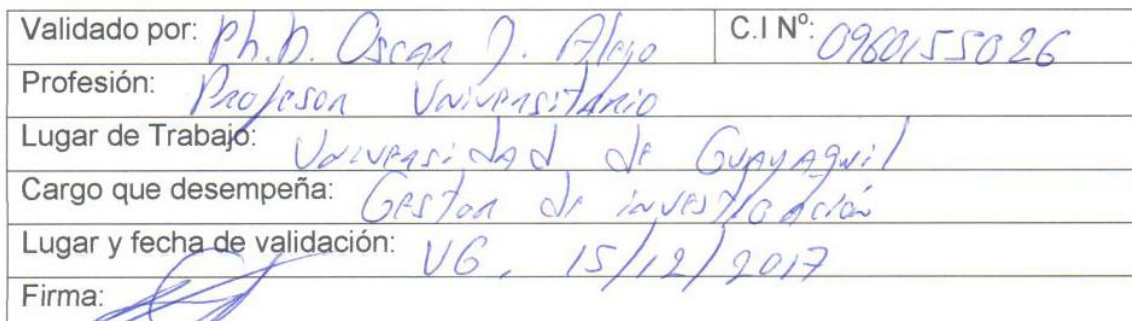 Validado por: Ph.D. Oscar J. Alejo C.I Nº: 0960155026
Profesión: Profesor Universitario
Lugar de Trabajo: Universidad de Guayaquil
Cargo que desempeña: Gestor de investigación
Lugar y fecha de validación: UG, 15/12/2017
Firma: